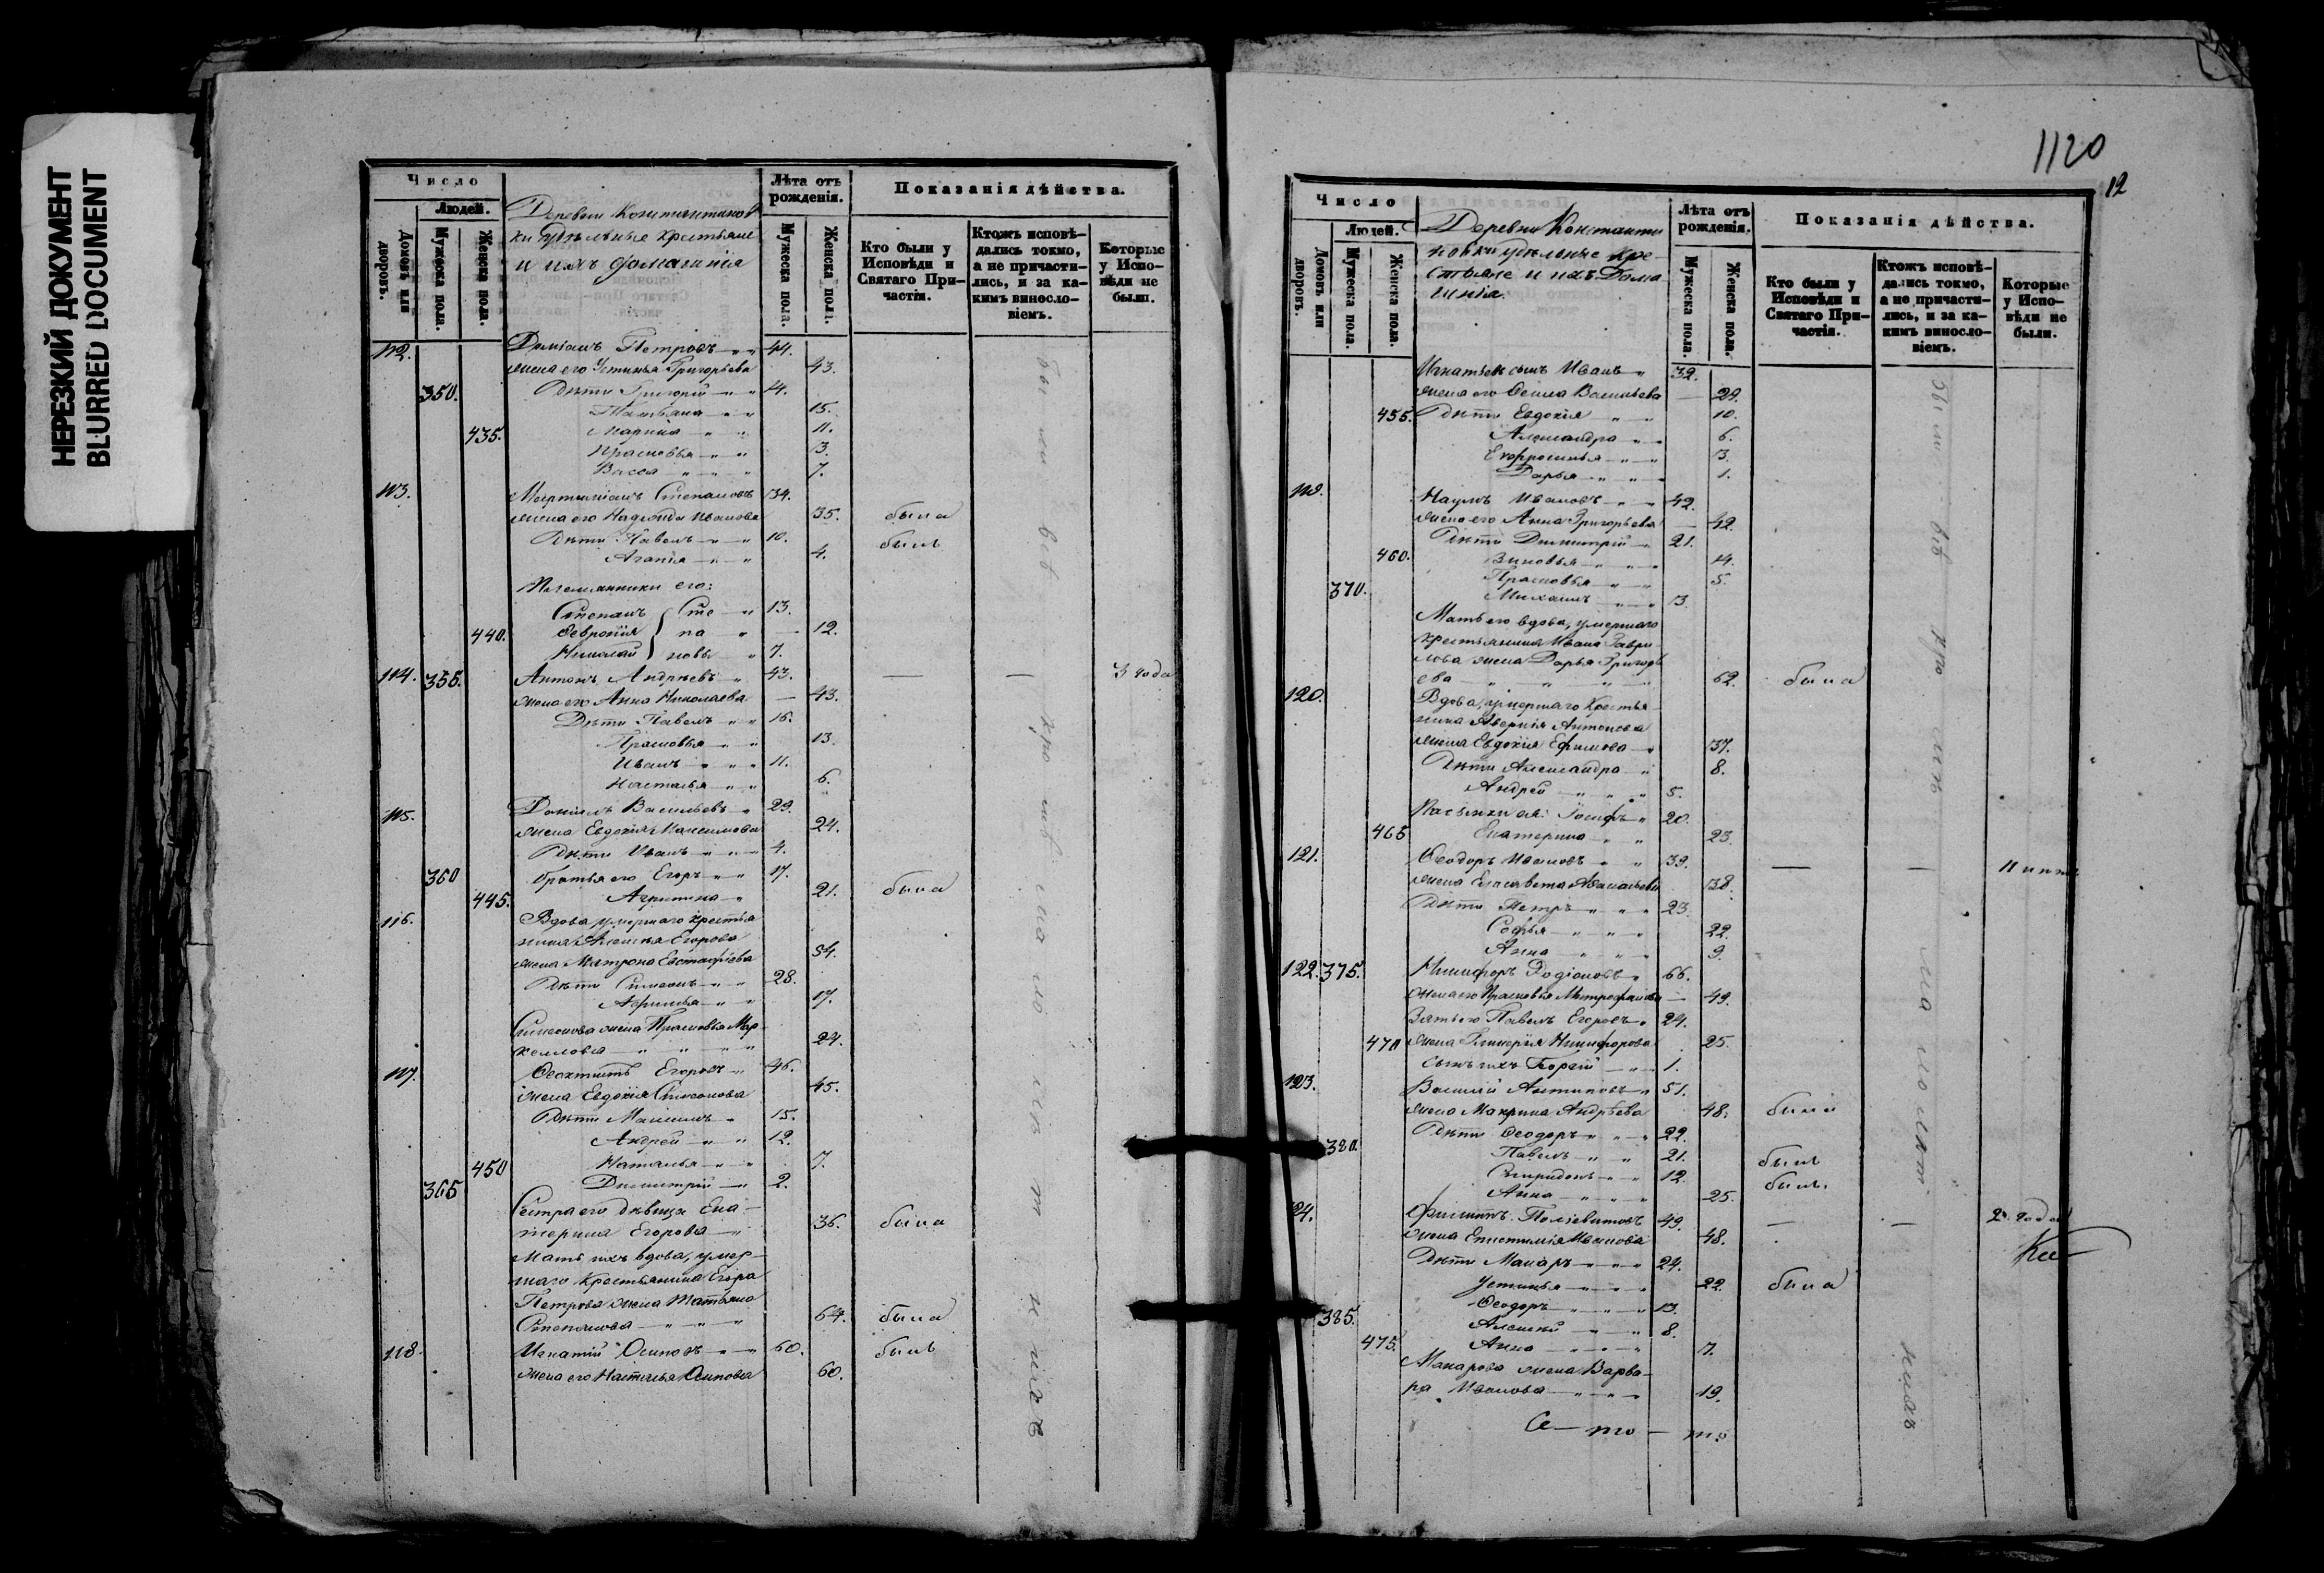 НЕРЕЗКИЙ ДОКУМЕНТ
BLURRED DOCUMENT
Число
Людей.
Домовъ или дворовъ.
Мужеска пола.
Женска пола.
Деревни Константинов
ки удѣльные крестьяне
и ихъ домашнія
Лѣта отъ рожденія.
Мужеска пола.
Женска пола.
Показанія дѣйства.
Кто были у Исповѣди и Святаго Причастія.
Ктожъ исповѣдались токмо, а не причастились, и за какимъ винословіемъ.
Которые у Исповѣди не были.
112. Даміанъ Петровъ 44.
жена его Устинья Григорьева 43.
350. Дѣти Григорій 14.
Татьяна 15.
435. Марѳа 11.
Прасковья 3.
Васса 7.
113. Мартиніанъ Степановъ 34.
жена его Надежда Иванова 35. была
Дѣти Павелъ 10. былъ
Агапія 4.
Племянники его:
Степанъ Сте 13.
440. Февронія па 12.
Николай новы 7.
114. 355. Антонъ Андреевъ 43. — — 3 года
жена его Анна Николаева — 43.
Дѣти Павелъ 16.
Прасковья 13.
Иванъ 11.
Наталья 6.
115. Даніилъ Васильевъ 29.
жена Евдокія Максимова 24.
Дѣти Иванъ 4.
360 братья его Егоръ 17.
445. Агрипина 21. была
116. Вдова умершаго крестья
нина Алексѣя Егорова
жена Матрона Евстафіева 54.
Дѣти Симеонъ 28.
Афимья 17.
Симеонова жена Прасковья Мар
келлова 24.
117. Ѳеоктистъ Егоровъ 46.
жена Евдокія Симеонова 45.
Дѣти Максимъ 15.
Андрей 12.
450 Наталья 7.
365 Димитрій 2.
Сестра его дѣвица Ека
терина Егорова 36. была
Мать ихъ вдова, умер
шаго крестьянина Егора
Петрова жена Татьяна
Степанова 64. была
118. Игнатій Осиповъ 60. былъ
жена его Наталья Осипова 60.
были всѣ кро мѣ
1120
12
Число
Людей.
Домовъ или дворовъ.
Мужеска пола.
Женска пола.
Деревни Константи
новки удѣльные кре
стьяне и ихъ Дома
шнія.
Лѣта отъ рожденія.
Мужеска пола.
Женска пола.
Показанія дѣйства.
Кто были у Исповѣди и Святаго Причастія.
Ктожъ исповѣдались токмо, а не причастились, и за какимъ винословіемъ.
Которые у Исповѣди не были.
Игнатьевъ сынъ Иванъ 32.
жена его Васильева — 29.
455. Дѣти Евдокія 10.
Александра 6.
Евфросинья 3.
Дарья 1.
119. Наумъ Ивановъ 42.
жена его Анна Григорьева — 42.
Дѣти Димитрій 21.
460. Зиновья 14.
Прасковья 5.
370. Михаилъ 13.
Мать его вдова, умершаго
крестьянина Ивана Гаври
лова жена Дарья Григорь
ева 62. была
120. Вдова, умершаго Крестья
нина Аверкія Антонова
жена Евдокія Ефимова 37.
Дѣти Александра 8.
Андрей 5.
Пасынки ея: Іосифъ 20.
465 Екатерина 23.
121. Ѳеодоръ Ивановъ 39. — —
жена Елисавета Аѳанасьева 38.
Дѣти Петръ 23.
Софья 22.
Анна 9.
122. 375. Никифоръ Родіоновъ 66.
жена его Прасковья Митрофанова — 49.
Зять его Павелъ Егоровъ 24.
470 жена Гликерія Никифорова 25.
сынъ ихъ Георгій 1.
123. Василій Антиповъ 51.
жена Макрина Андрѣева 48. была
Дѣти Ѳеодоръ 22.
380. Павелъ 21. былъ
Спиридонъ 12. былъ.
Анна 25.
124. Филиппъ Поліевктовъ 49. — — 2 года
жена Епистимія Иванова 48.
Дѣти Макаръ 24.
Устинья 22. была
Ѳеодоръ 13.
385. Алексѣй 8.
475. Анна 7.
Макарова жена Варва
ра Иванова 19.
были всѣ кро мѣ